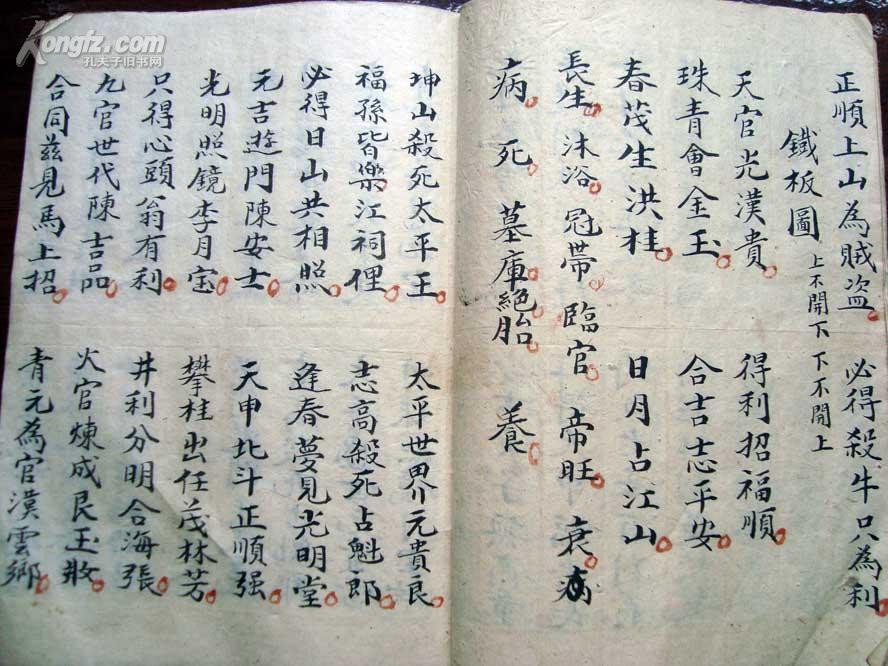 Kongfz.com
孔夫子旧书网
正順上山為賊盗 必得殺牛只為利
鐵板圖 上不開下 下不開上
天官光漢貴 得利招福順
珠青會金玉 合吉志平安
春茂生洪桂 日月占江山
長生 沐浴 冠帶 臨官 帝旺 衰
病 死 墓庫 絕胎 養
坤山殺死太平王 太平世界元貴良
福孫皆樂江祠俚 志高殺死占魁郎
必得日山共相照 逢春夢見光明堂
元吉遊門陳安士 天申北斗正順强
光明照鏡李月宝 攀桂出任茂林芳
只得心頭翁有利 井利分明合海張
九官世代陳吉品 火官煉成艮玉妝
合同茲見馬上招 青元為官漢雲鄉